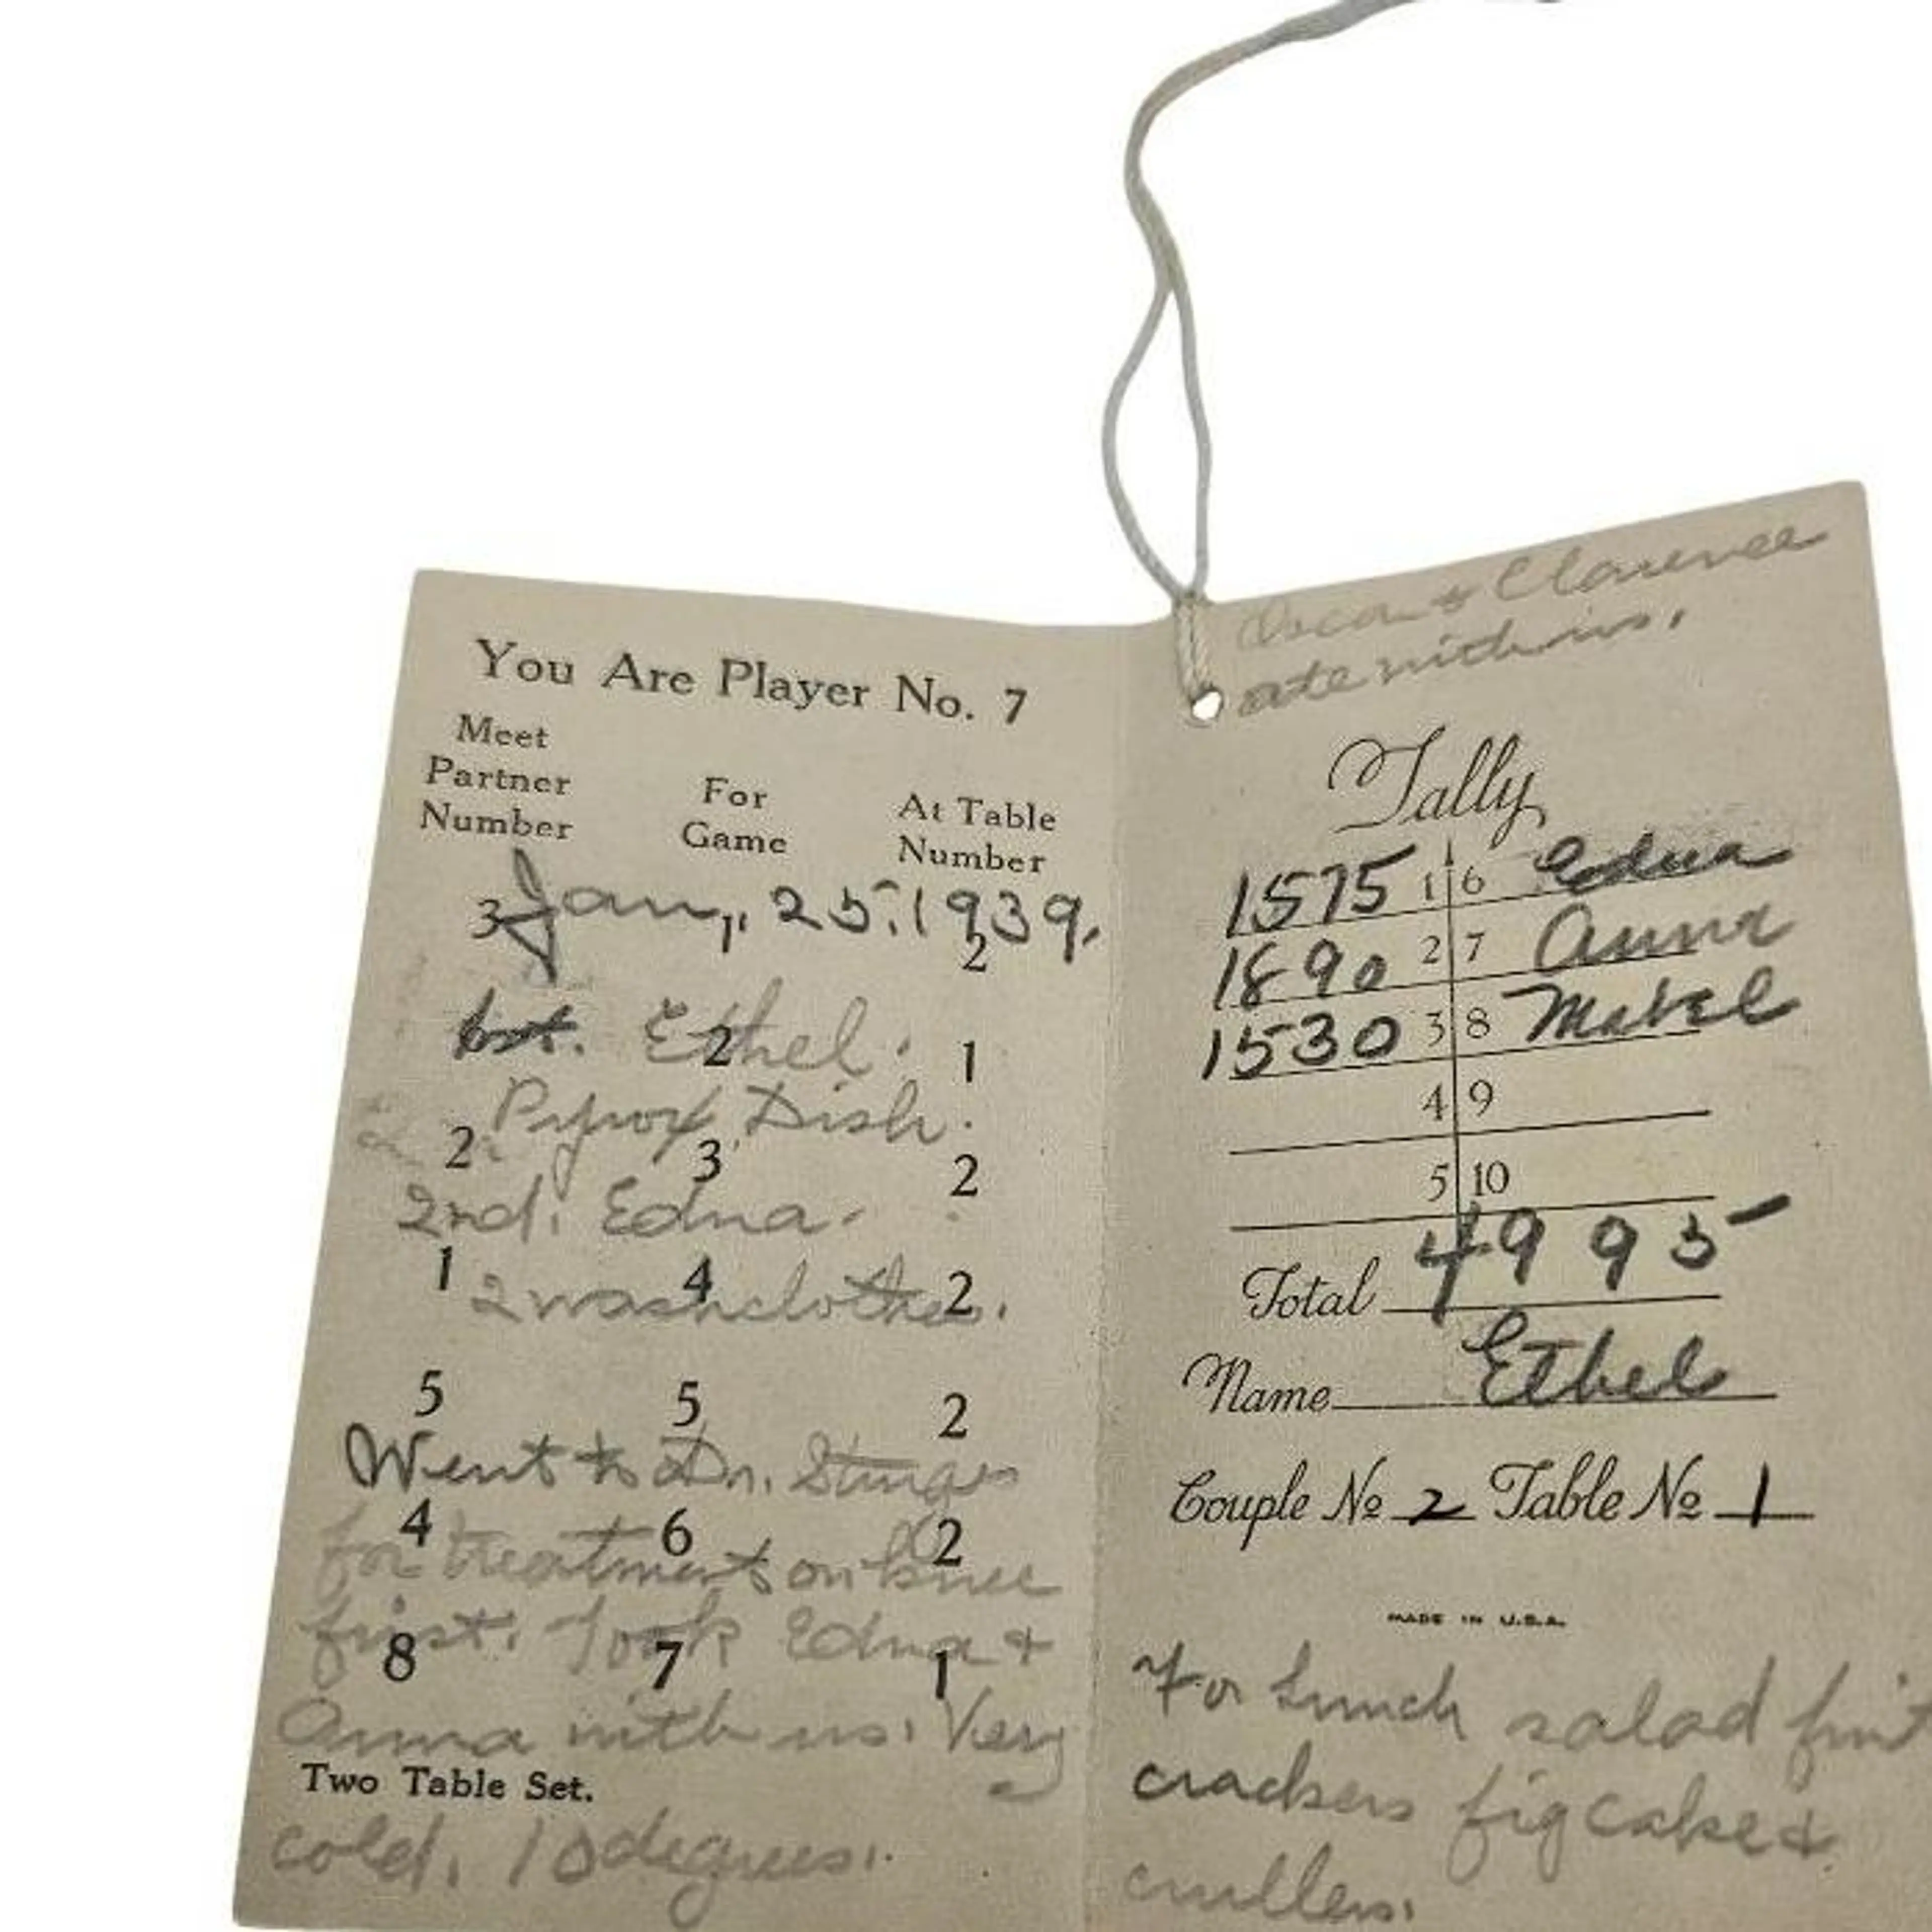 You Are Player No. 7
Meet
Partner For At Table
Number Game Number
3 1 2
Jan, 25, 1939.
1st. Ethel.
2 1
Pyrox Dish.
2 3 2
2nd. Edna.
1 4 2
2 washclothes.
5 5 2
Went to Dr. Sturges
4 6 2
for treatment on knee
first. Took Edna &
8 7 1
Anna with us. Very
Two Table Set.
cold. 10 degrees.
Oscar & Clarence
ate with us.
Tally
1575 1 6 Edna
1890 2 7 Anna
1530 3 8 Mabel
4 9
5 10
Total 4995
Name Ethel
Couple No 2 Table No 1
MADE IN U.S.A.
For Lunch salad fruit
crackers fig cake &
crullers.